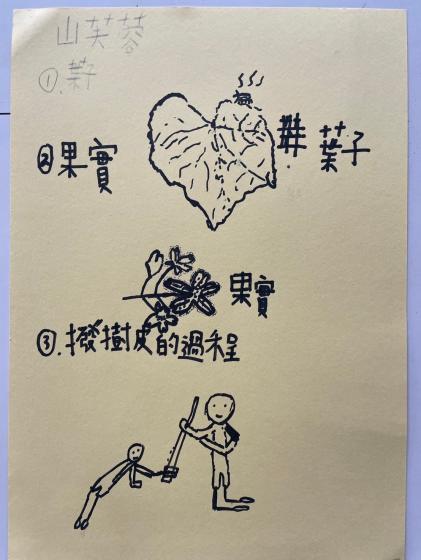 山芙蓉
①.葉子
②果實
葉子
果實
③.撥樹皮的過程